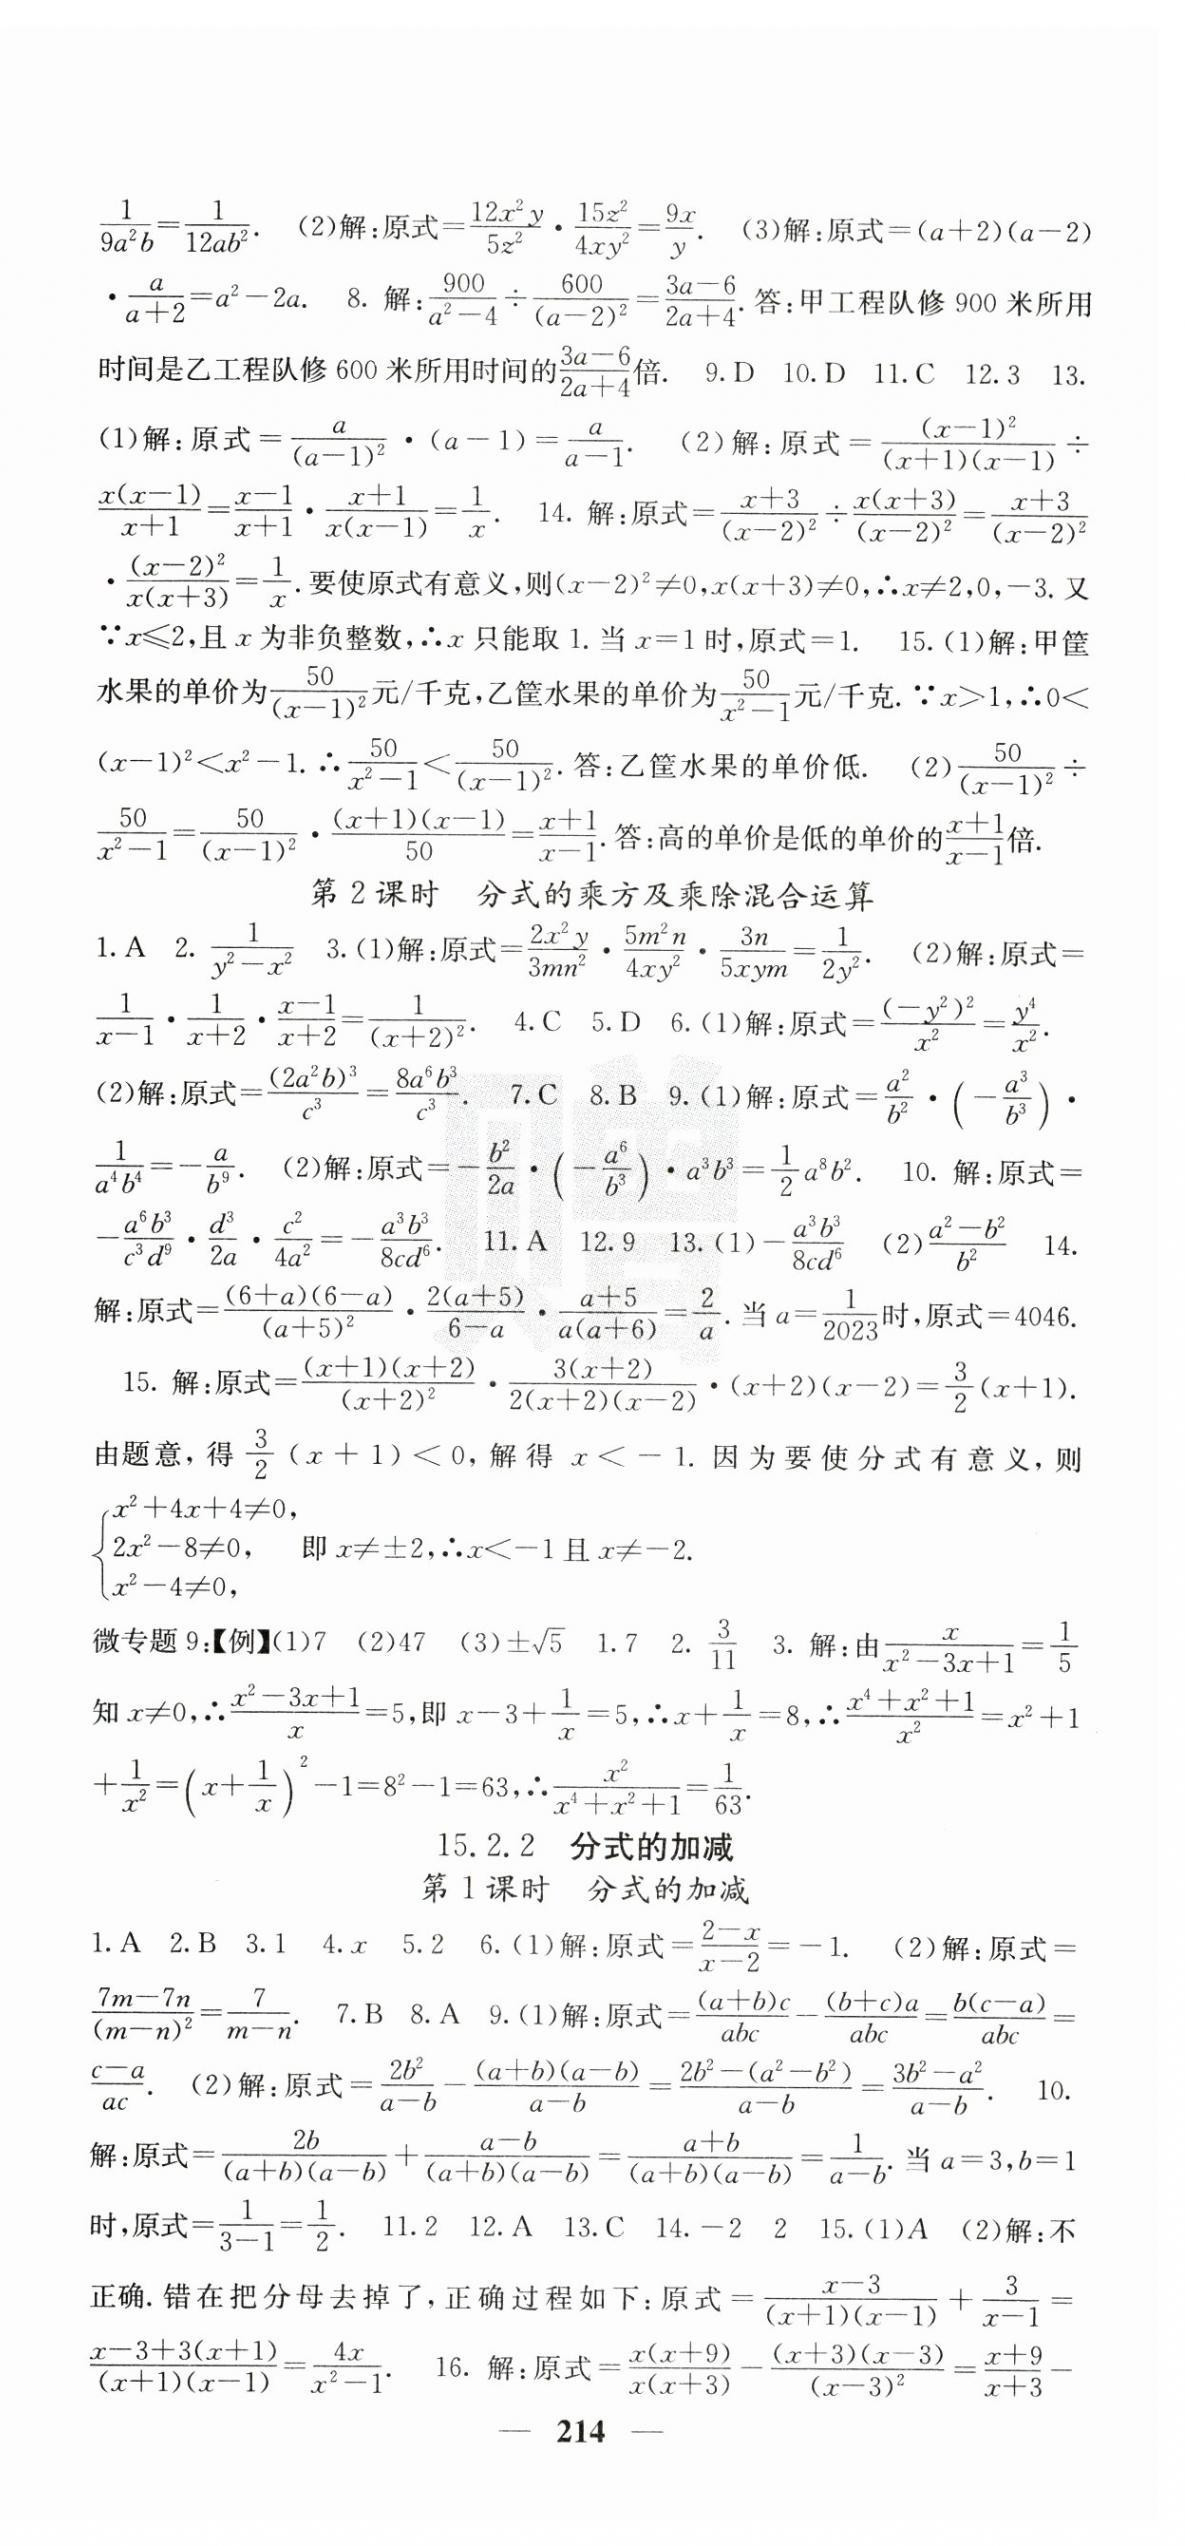 1/(9a²b)=1/(12ab²). (2)解:原式=12x²y/(5z²)·15z²/(4xy²)=9x/y. (3)解:原式=(a+2)(a-2)
·a/(a+2)=a²-2a. 8. 解:900/(a²-4)÷600/(a-2)²=(3a-6)/(2a+4).答:甲工程队修 900 米所用
时间是乙工程队修 600 米所用时间的(3a-6)/(2a+4)倍. 9.D 10.D 11.C 12.3 13.
(1)解:原式=a/(a-1)²·(a-1)=a/(a-1). (2)解:原式=(x-1)²/((x+1)(x-1))÷
x(x-1)/(x+1)=(x-1)/(x+1)·(x+1)/(x(x-1))=1/x. 14. 解:原式=(x+3)/(x-2)²÷x(x+3)/(x-2)²=(x+3)/(x-2)²
·(x-2)²/(x(x+3))=1/x.要使原式有意义,则(x-2)²≠0,x(x+3)≠0,∴x≠2,0,-3.又
∵x≤2,且 x 为非负整数,∴x 只能取 1.当 x=1 时,原式=1. 15.(1)解:甲筐
水果的单价为50/(x-1)²元/千克,乙筐水果的单价为50/(x²-1)元/千克.∵x>1,∴0<
(x-1)²<x²-1.∴50/(x²-1)<50/(x-1)².答:乙筐水果的单价低. (2)50/(x-1)²÷
50/(x²-1)=50/(x-1)²·(x+1)(x-1)/50=(x+1)/(x-1).答:高的单价是低的单价的(x+1)/(x-1)倍.
第 2 课时 分式的乘方及乘除混合运算
1.A 2. 1/(y²-x²) 3.(1)解:原式=2x²y/(3mn²)·5m²n/(4xy²)·3n/(5xym)=1/(2y²). (2)解:原式=
1/(x-1)·1/(x+2)·(x-1)/(x+2)=1/(x+2)². 4.C 5.D 6.(1)解:原式=(-y²)²/x²=y⁴/x².
(2)解:原式=(2a²b)³/c³=8a⁶b³/c³. 7.C 8.B 9.(1)解:原式=a²/b²·(-a³/b³)·
1/(a⁴b⁴)=-a/b⁹. (2)解:原式=-b²/(2a)·(-a⁶/b³)·a³b³=1/2 a⁸b². 10. 解:原式=
-a⁶b³/(c³d⁹)·d³/(2a)·c²/(4a²)=-a³b³/(8cd⁶). 11.A 12.9 13.(1)-a³b³/(8cd⁶) (2)(a²-b²)/b² 14.
解:原式=(6+a)(6-a)/(a+5)²·2(a+5)/(6-a)·(a+5)/(a(a+6))=2/a.当 a=1/2023时,原式=4046.
15. 解:原式=(x+1)(x+2)/(x+2)²·3(x+2)/(2(x+2)(x-2))·(x+2)(x-2)=3/2(x+1).
由题意,得 3/2(x+1)<0,解得 x<-1.因为要使分式有意义,则
{x²+4x+4≠0,
2x²-8≠0, 即 x≠±2,∴x<-1 且 x≠-2.
x²-4≠0,
微专题 9:【例】(1)7 (2)47 (3)±√5 1.7 2. 3/11 3. 解:由x/(x²-3x+1)=1/5
知 x≠0,∴(x²-3x+1)/x=5,即 x-3+1/x=5,∴x+1/x=8,∴(x⁴+x²+1)/x²=x²+1
+1/x²=(x+1/x)²-1=8²-1=63,∴x²/(x⁴+x²+1)=1/63.
15.2.2 分式的加减
第 1 课时 分式的加减
1.A 2.B 3.1 4.x 5.2 6.(1)解:原式=(2-x)/(x-2)=-1. (2)解:原式=
(7m-7n)/(m-n)²=7/(m-n). 7.B 8.A 9.(1)解:原式=(a+b)c/abc-(b+c)a/abc=b(c-a)/abc=
(c-a)/ac. (2)解:原式=2b²/(a-b)-(a+b)(a-b)/(a-b)=(2b²-(a²-b²))/(a-b)=(3b²-a²)/(a-b). 10.
解:原式=2b/((a+b)(a-b))+(a-b)/((a+b)(a-b))=(a+b)/((a+b)(a-b))=1/(a-b).当 a=3,b=1
时,原式=1/(3-1)=1/2. 11.2 12.A 13.C 14.-2 2 15.(1)A (2)解:不
正确.错在把分母去掉了,正确过程如下:原式=(x-3)/((x+1)(x-1))+3/(x-1)=
(x-3+3(x+1))/((x+1)(x-1))=4x/(x²-1). 16. 解:原式=x(x+9)/(x(x+3))-(x+3)(x-3)/(x-3)²=(x+9)/(x+3)-
— 214 —